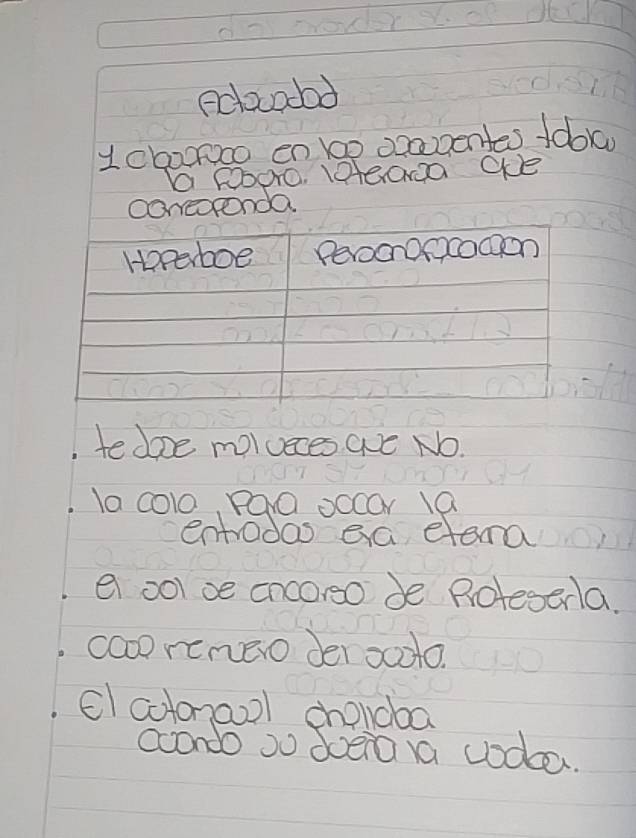 Actividad
1 clasifico en las siguientes tabla
la figura literaria que
corresponda.
Hiperboe Personificacion
. te dije mil veces que No.
. la cola para sacar la
entradas era eterna
. el sol se encargo de Protegerla.
. casi me muero del susto.
. El automovil
cuando su dueño la